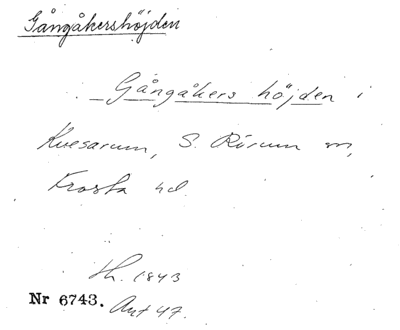 Gångåkershöjden
Gångåkers höjden i
Kvesarum, S. Rörum sn,
Frosta hd.
Lh. 1843
Nr 6743. Ant 47.